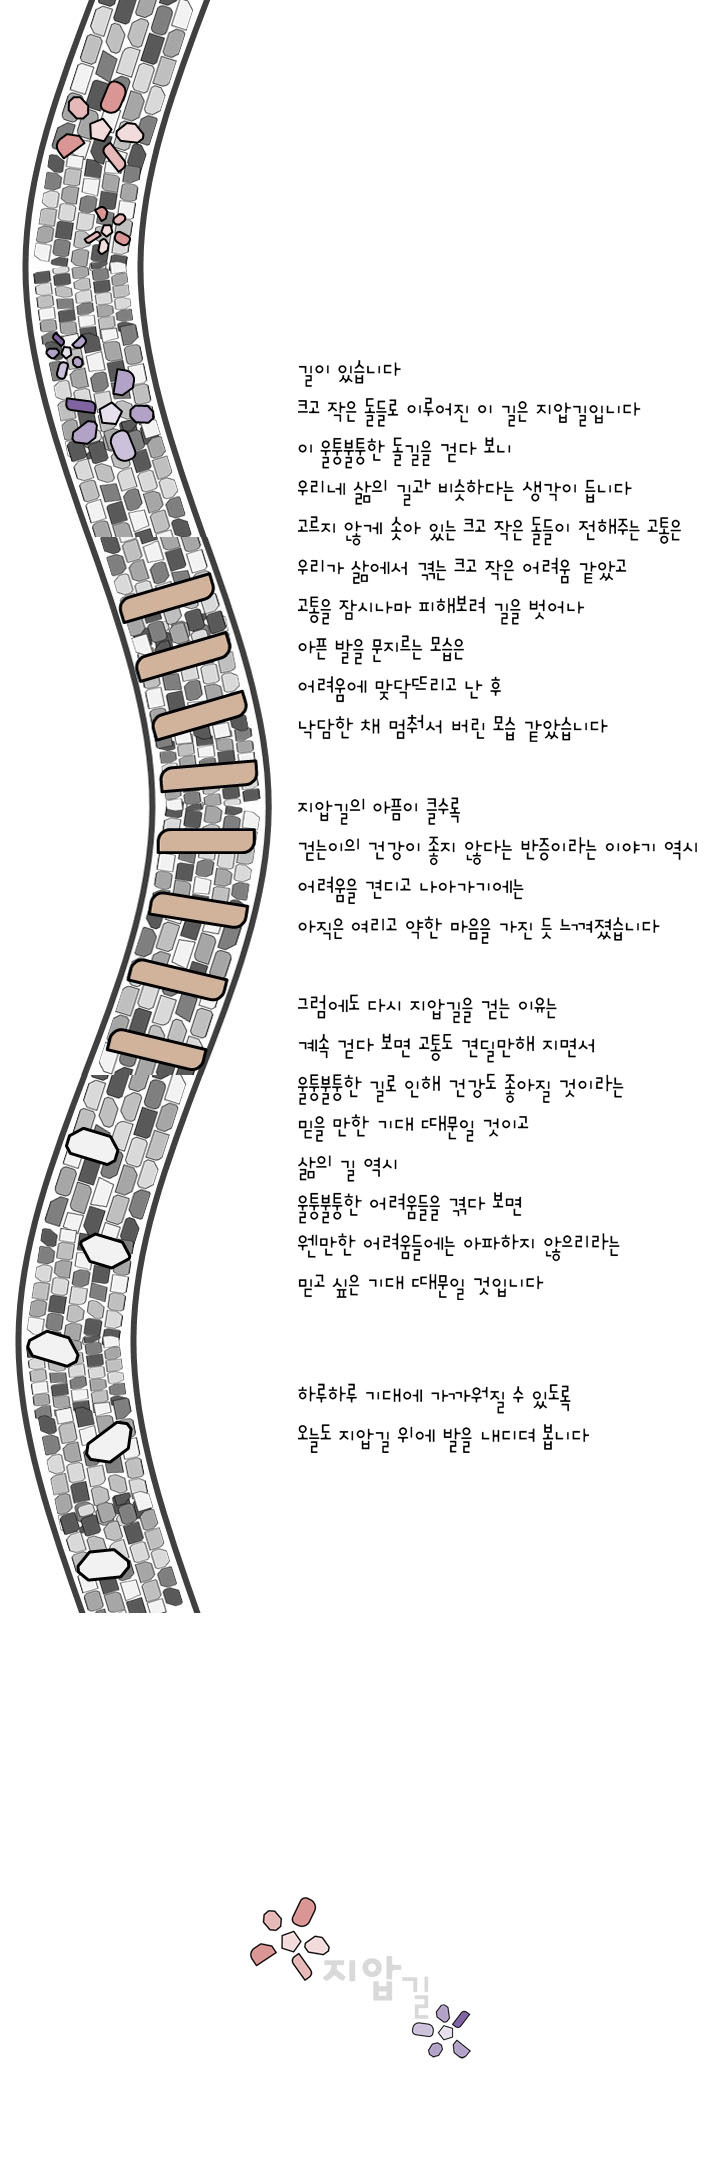 길이 있습니다
크고 작은 돌들로 이루어진 이 길은 지압길입니다
이 울퉁불퉁한 돌길을 걷다 보니
우리네 삶의 길과 비슷하다는 생각이 듭니다
고르지 않게 솟아 있는 크고 작은 돌들이 전해주는 고통은
우리가 삶에서 겪는 크고 작은 어려움 같았고
고통을 잠시나마 피해보려 길을 벗어나
아픈 발을 문지르는 모습은
어려움에 맞닥뜨리고 난 후
낙담한 채 멈춰서 버린 모습 같았습니다
지압길의 아픔이 클수록
걷는이의 건강이 좋지 않다는 반증이라는 이야기 역시
어려움을 견디고 나아가기에는
아직은 여리고 약한 마음을 가진 듯 느껴졌습니다
그럼에도 다시 지압길을 걷는 이유는
계속 걷다 보면 고통도 견딜만해 지면서
울퉁불퉁한 길로 인해 건강도 좋아질 것이라는
믿을 만한 기대 때문일 것이고
삶의 길 역시
울퉁불퉁한 어려움들을 겪다 보면
웬만한 어려움들에는 아파하지 않으리라는
믿고 싶은 기대 때문일 것입니다
하루하루 기대에 가까워질 수 있도록
오늘도 지압길 위에 발을 내디뎌 봅니다
지압길